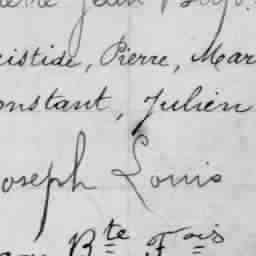 Jean
ristide, Pierre, Mar
onstant, Julien
oseph Louis
Bte Fois